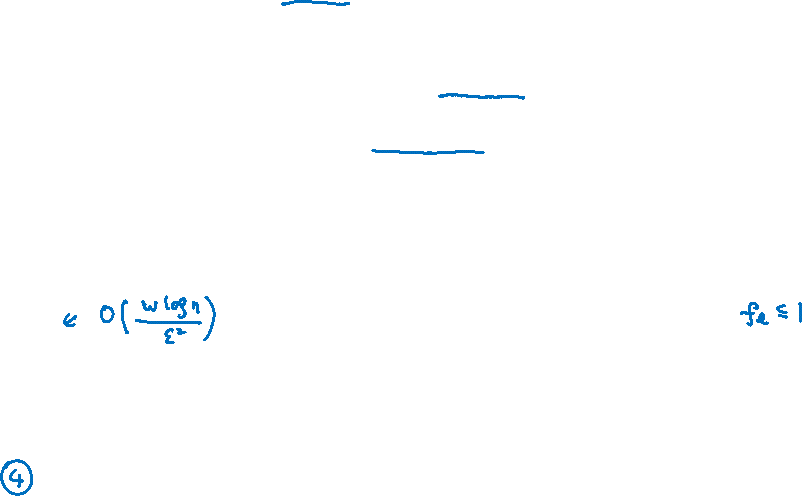 ← O(w log n / ε²) fe ≤ 1
④